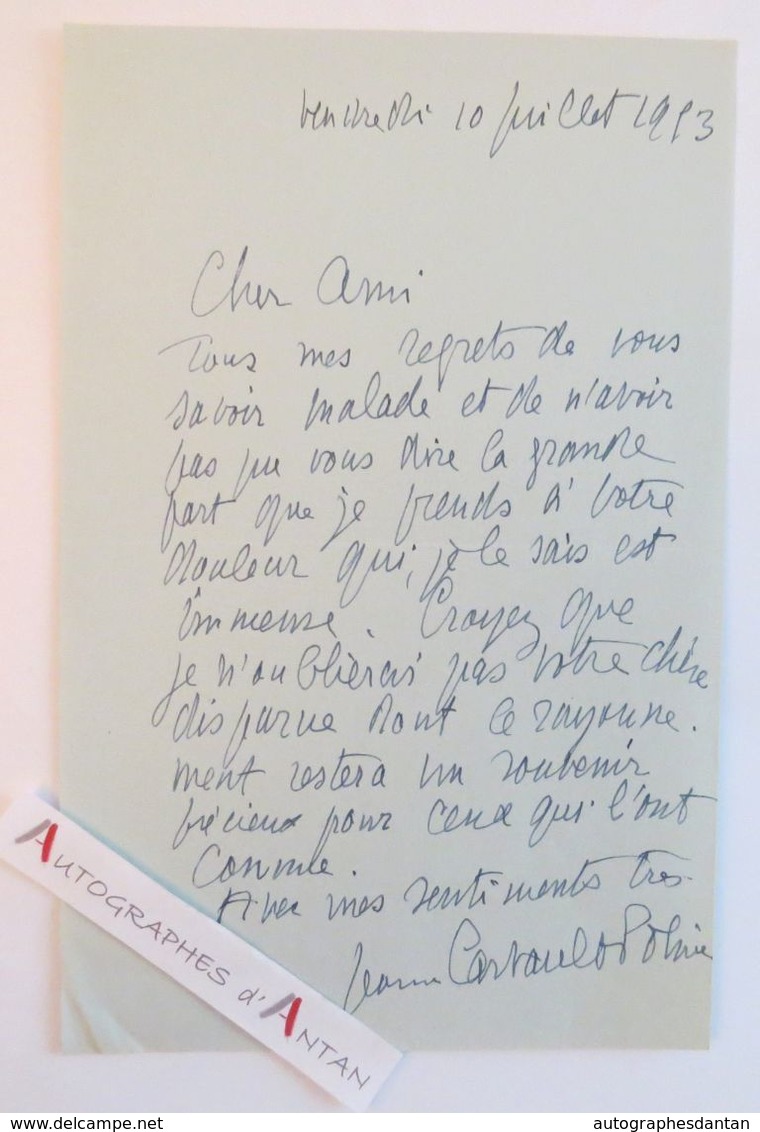 Vendredi 10 juillet 1953
Cher Ami
Tous mes regrets de vous
savoir malade et de n'avoir
pas pu vous dire la grande
part que je prends à votre
douleur qui, je le sais est
immense. Croyez que
je n'oublierai pas votre chère
disparue dont le rayonne-
ment restera un souvenir
précieux pour ceux qui l'ont
connue.
Avec mes sentiments très
Jeanne
AUTOGRAPHES d'ANTAN
www.delcampe.net
autographesdantan